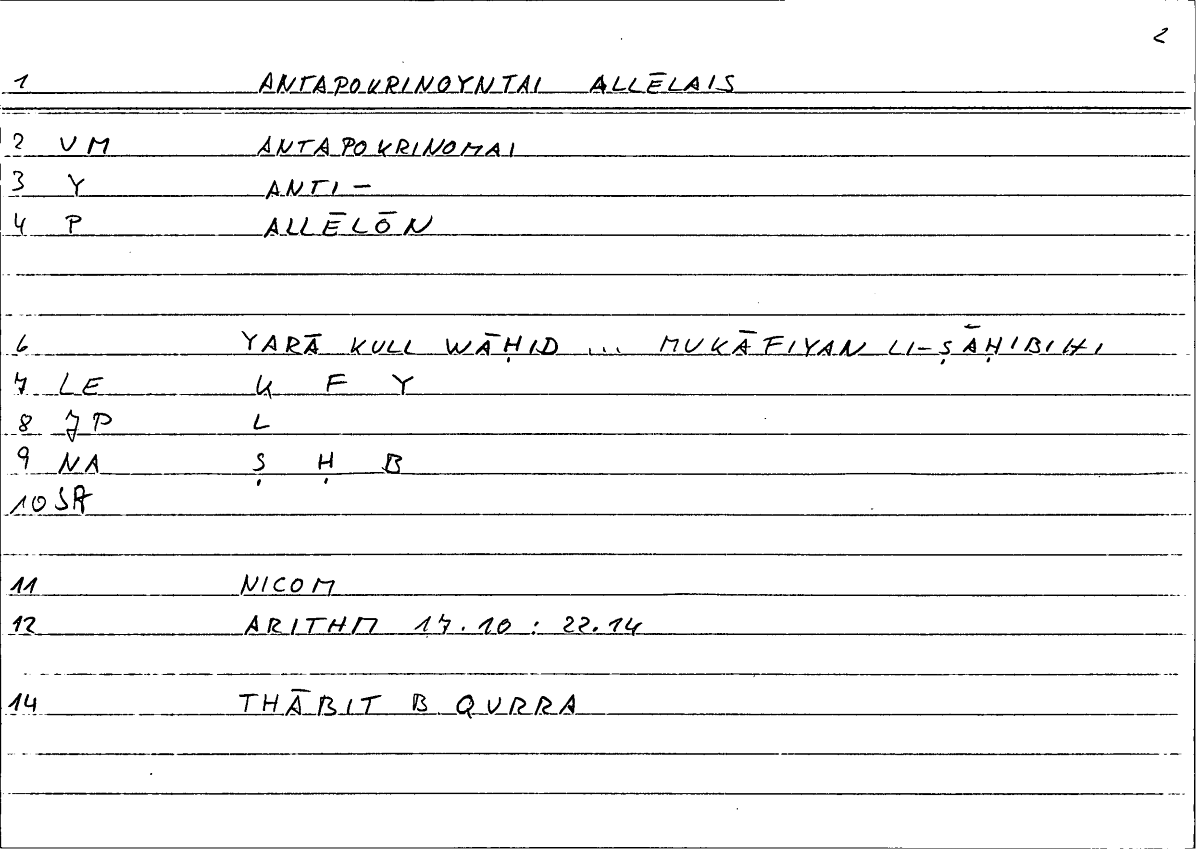 2
1 ANTAPOKRINOYNTAI ALLĒLAIS
2 VM ANTAPOKRINOMAI
3 Y ANTI-
4 P ALLĒLŌN
6 YARĀ KULL WĀḤID ... MUKĀFIYAN LI-ṢĀḤIBIHI
7 LE K F Y
8 JP L
9 NA Ṣ Ḥ B
10 SA
11 NICOM
12 ARITHM 17.10 : 22.14
14 THĀBIT B QURRA